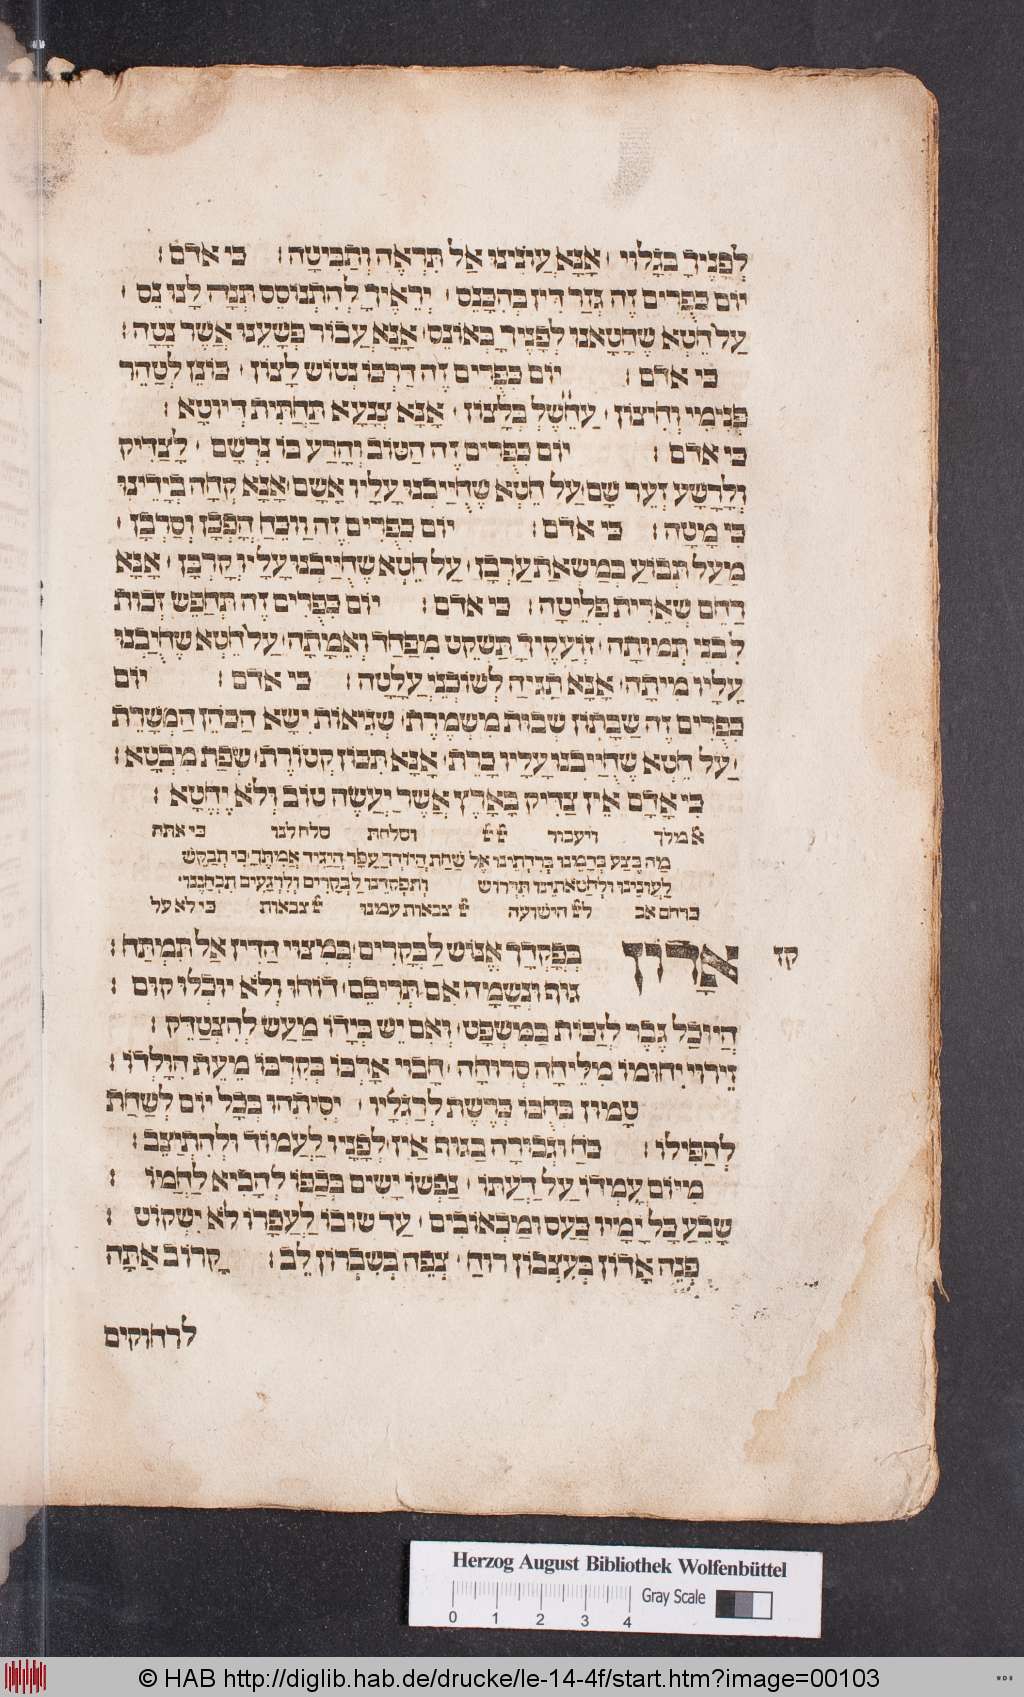 לְפָנֶיךָ כְּגָלוּי · אָנָּא עֲוֹנֵינוּ אַל תִּרְאֶה וְתַבִּיטָה : כי אדם :
יוֹם כִּפֻּרִים זֶה גְּזַר דִּין בְּהִכָּנֵס · יְרֵאֶיךָ לְהִתְנוֹסֵס תְּנָה לָנוּ נֵס ·
עַל חֵטְא שֶׁחָטָאנוּ לְפָנֶיךָ בְּאוֹנֶס · אָנָּא עֲבוֹר פְּשָׁעֵנוּ אֲשֶׁר נָטָה :
כי אדם : יוֹם כִּפֻּרִים זֶה דַּרְכּוֹ נְטוֹשׁ לָצוֹן · כּוֹנֵן לְטַהֵר
פְּנִימִי וְחִיצוֹן · עַהֵ״שׁ״ל בְּלָצוֹן · אָנָּא צַנְעָא תַּחְתִּית דְּיוֹטָא :
כי אדם : יוֹם כִּפֻּרִים זֶה הַטּוֹב וְהָרַע בּוֹ נִרְשָׁם · לְצַדִּיק
וְלָרָשָׁע זְעֵר שָׁם · עַל חֵטְא שֶׁחִיַּיבְנוּ עָלָיו אָשָׁם · אָנָּא קְהָה בְיָדֵינוּ
כִּי מָטָה : כי אדם : יוֹם כִּפֻּרִים זֶה וִוכַּח הָפְכָּן וְסַרְבָן ·
מַעַל תִּבּוֹעַ בְּמַשְׂאַת עַרְבָן · עַל חֵטְא שֶׁחִיַּיבְנוּ עָלָיו קָרְבָּן · אָנָּא
רַחֵם שְׁאֵרִית פְּלֵיטָה : כי אדם : יוֹם כִּפֻּרִים זֶה תְּחַפֵּשׂ זְכוּת
לִבְנֵי תְמוּתָה · זוֹעֲקֶיךָ תַּשְׁקֵט מִפַּחַד וְאֵמָתָה · עַל חֵטְא שֶׁחִיַּבְנוּ
עָלָיו מִיתָה · אָנָּא תַּגִּיהַּ לְשׁוֹכְנֵי עֲלָטָה : כי אדם : יוֹם
כִּפֻּרִים זֶה שַׁבָּתוֹן שְׁבוּת מִשְׁמֶרֶת · שְׁגִיאוֹת יִשָּׂא הַכֹּהֵן הַמְּשָׁרֵת
· עַל חֵטְא שֶׁחִיַּיבְנוּ עָלָיו כָּרֵת · אָנָּא תִּכּוֹן קְטוֹרֶת · שְׂפַת מִבְטָא :
כִּי אָדָם אֵין צַדִּיק בָּאָרֶץ אֲשֶׁר יַעֲשֶׂה טוֹב וְלֹא יֶחֱטָא :
א מלך ויעבור וסלחת סלח לנו כי אתה
מַה בֶּצַע בְּדָמֵנוּ בְּרִדְתֵּינוּ אֶל שַׁחַת הֲיוֹדְךָ עָפָר הֲיַגִּיד אֲמִתֶּךָ · כִּי תְבַקֵּשׁ
לַעֲוֹנֵינוּ וּלְחַטֹּאתֵינוּ תִדְרוֹשׁ וְתִפְקְדֵנוּ לִבְקָרִים וְלִרְגָעִים תִּבְחָנֵנוּ ·
כרחם אב ליי הישועה יי צבאות עמנו יי צבאות כי לא על
קד אָדוֹן בְּפָקְדְךָ אֱנוֹשׁ לַבְּקָרִים · בְּמִצּוּי הַדִּין אַל תִּמְתַּח :
גּוּף וּנְשָׁמָה אִם תְּרִיבֵם · דּוֹחוּ וְלֹא יוּכְלוּ קוּם :
הֲיוּכַל גֶּבֶר לִזְכּוֹת בַּמִּשְׁפָּט · וְאִם יֵשׁ בְּיָדוֹ מַעַשׂ לְהִצְטַדֵּק :
זֵירוּי יִחוּמוֹ מִלֵּיחָה סְרוּחָה · חָבוּי אָרְבּוֹ בְּקִרְבּוֹ מֵעֵת הִוָּלְדוֹ :
טָמוּן בְּחֻבּוֹ כְּרֶשֶׁת לְרַגְלָיו · יְסִיתֵהוּ בְּכָל יוֹם לְשַׁחַת
לְהַפִּילוֹ : כֹּחַ וּגְבוּרָה בַּגּוּף אֵין · לְפָנָיו לַעֲמוֹד וּלְהִתְיַצֵּב :
מִיּוֹם עָמְדוֹ עַל דַּעְתּוֹ · נַפְשׁוֹ יָשִׂים בְּכַפּוֹ לְהָבִיא לַחְמוֹ :
שָׂבֵעַ כָּל יָמָיו כַּעַס וּמַכְאוֹבִים · עַד שׁוּבוֹ לַעֲפָרוֹ לֹא יִשְׁקוֹט :
פְּנֵה אָדוֹן בְּעִצְּבוֹן רוּחַ · צְפֵה בְּשִׁבְרוֹן לֵב : קָרוֹב אַתָּה
לרחוקים
Herzog August Bibliothek Wolfenbüttel
0 1 2 3 4 Gray Scale
© HAB http://diglib.hab.de/drucke/le-14-4f/start.htm?image=00103